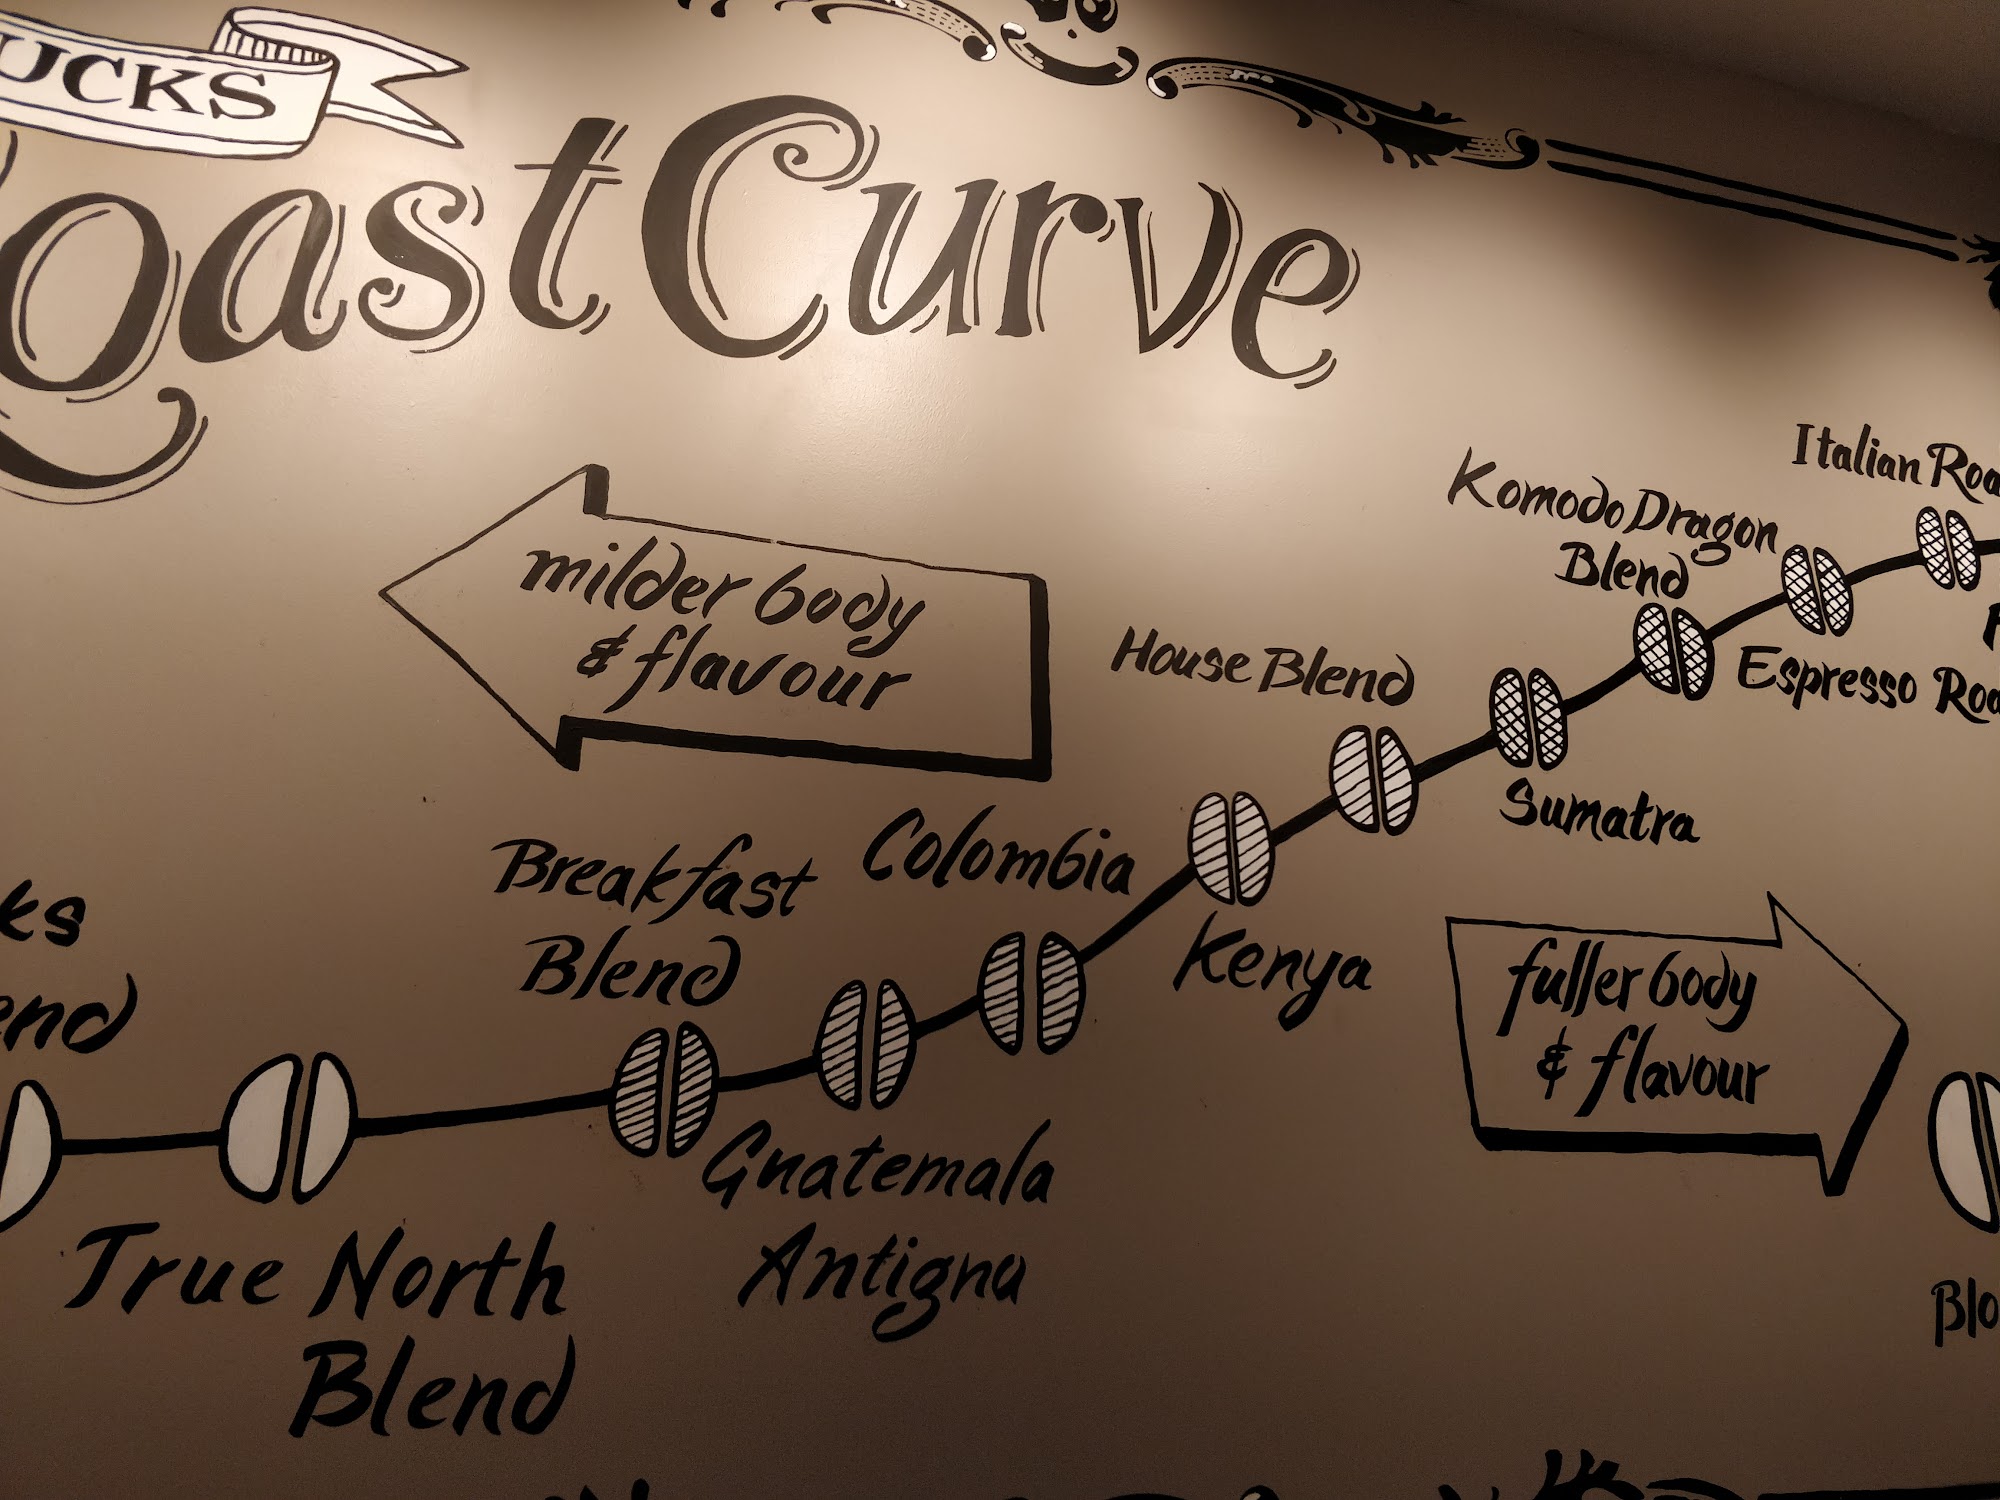 UCKS
Roast Curve
milder body
& flavour
Italian Roa
Komodo Dragon
Blend
Espresso Roa
House Blend
Sumatra
Colombia
Kenya
Breakfast
Blend
fuller body
& flavour
ks
end
Guatemala
Antigua
True North
Blend
Blo